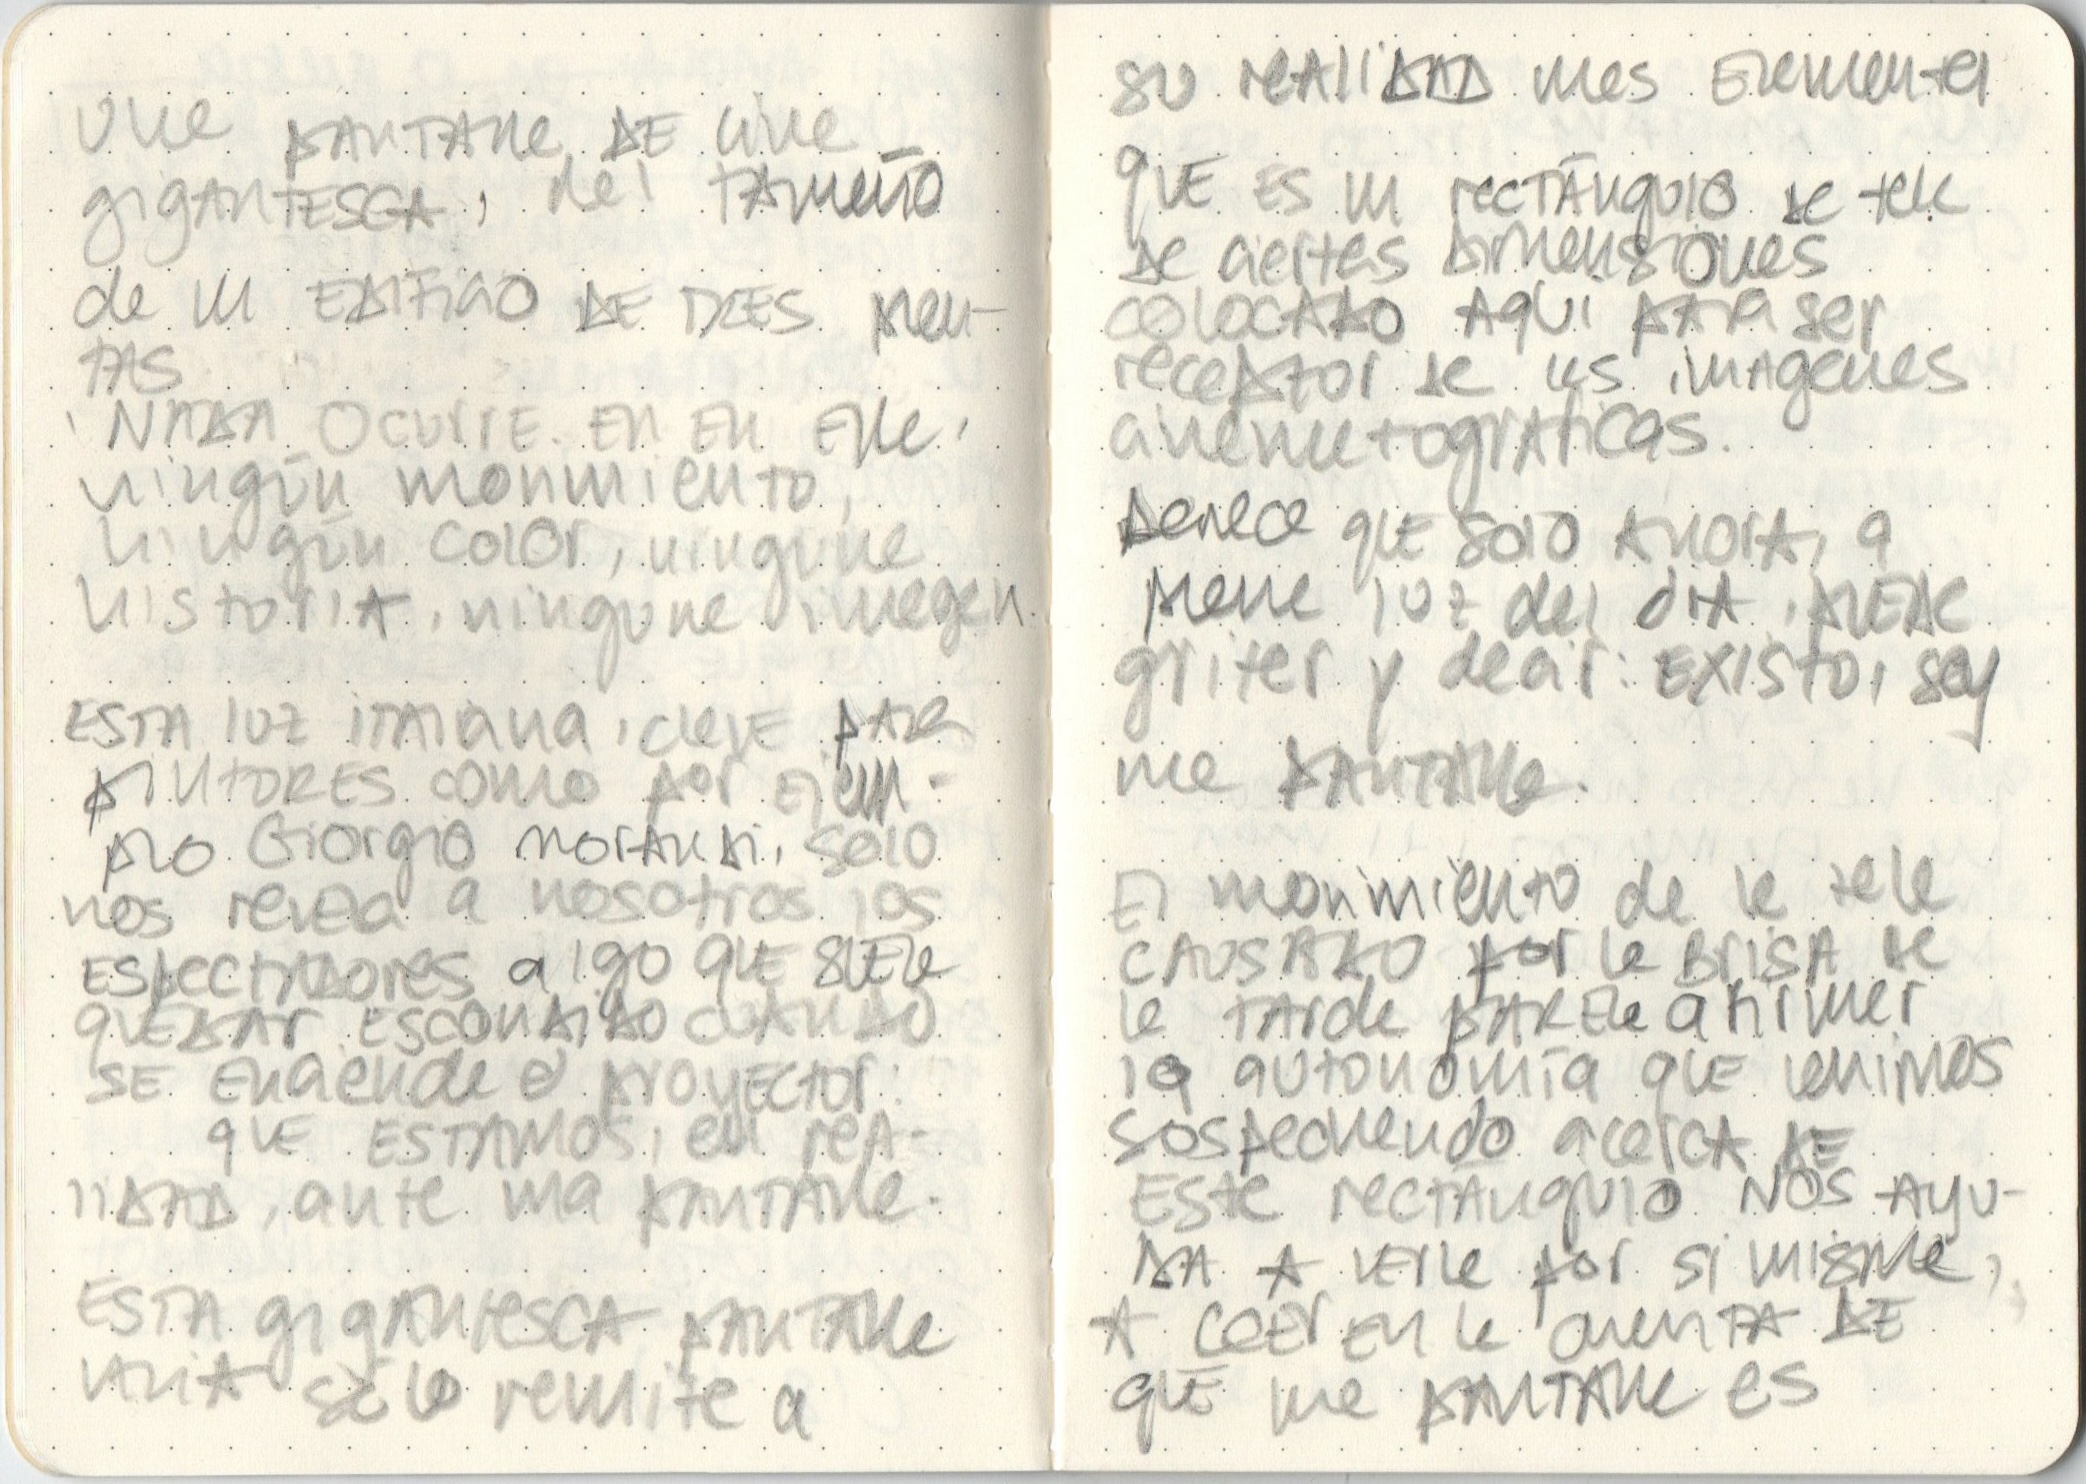 una pantalla de cine
gigantesca, del tamaño
de un edificio de tres plan-
tas
Nada ocurre. en en ella,
ningún movimiento,
ningún color, ninguna
historia, ninguna imagen.
Esta luz italiana, clave para
pintores como por ejem-
plo Giorgio Morandi, solo
nos revela a nosotros los
espectadores algo que suele
quedar escondido cuando
se enciende el proyector:
que estamos, en rea-
lidad, ante una pantalla.
Esta gigantesca pantalla
vacía sólo remite a
su realidad mas elemental
que es un rectángulo de tela
de ciertas dimensiones
colocado aquí para ser
receptor de las imagenes
cinematograficas.
Parece que solo ahora, a
plena luz del dia, puede
gritar y decir: existo, soy
una pantalla.
El movimiento de la tela
causado por la brisa de
la tarde parece afirmar
la autonomía que venimos
sospechando acerca de
Este rectángulo nos ayu-
da a verla por si misma,
a caer en la cuenta de
que una pantalla es